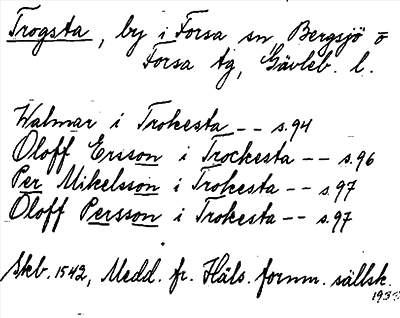 Trogsta, by i Forsa sn, Bergsjö o
Forsa tg, Gävleb. l.
Walmar i Trokesta -- s. 94
Oloff Ersson i Trockesta -- s. 96
Per Mikelsson i Trokesta -- s. 97
Oloff Persson i Trokesta -- s. 97
Skb. 1542, Medd. fr. Häls. fornm. sällsk.